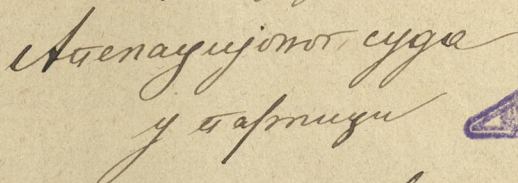 Апелацијоног суда
у парници